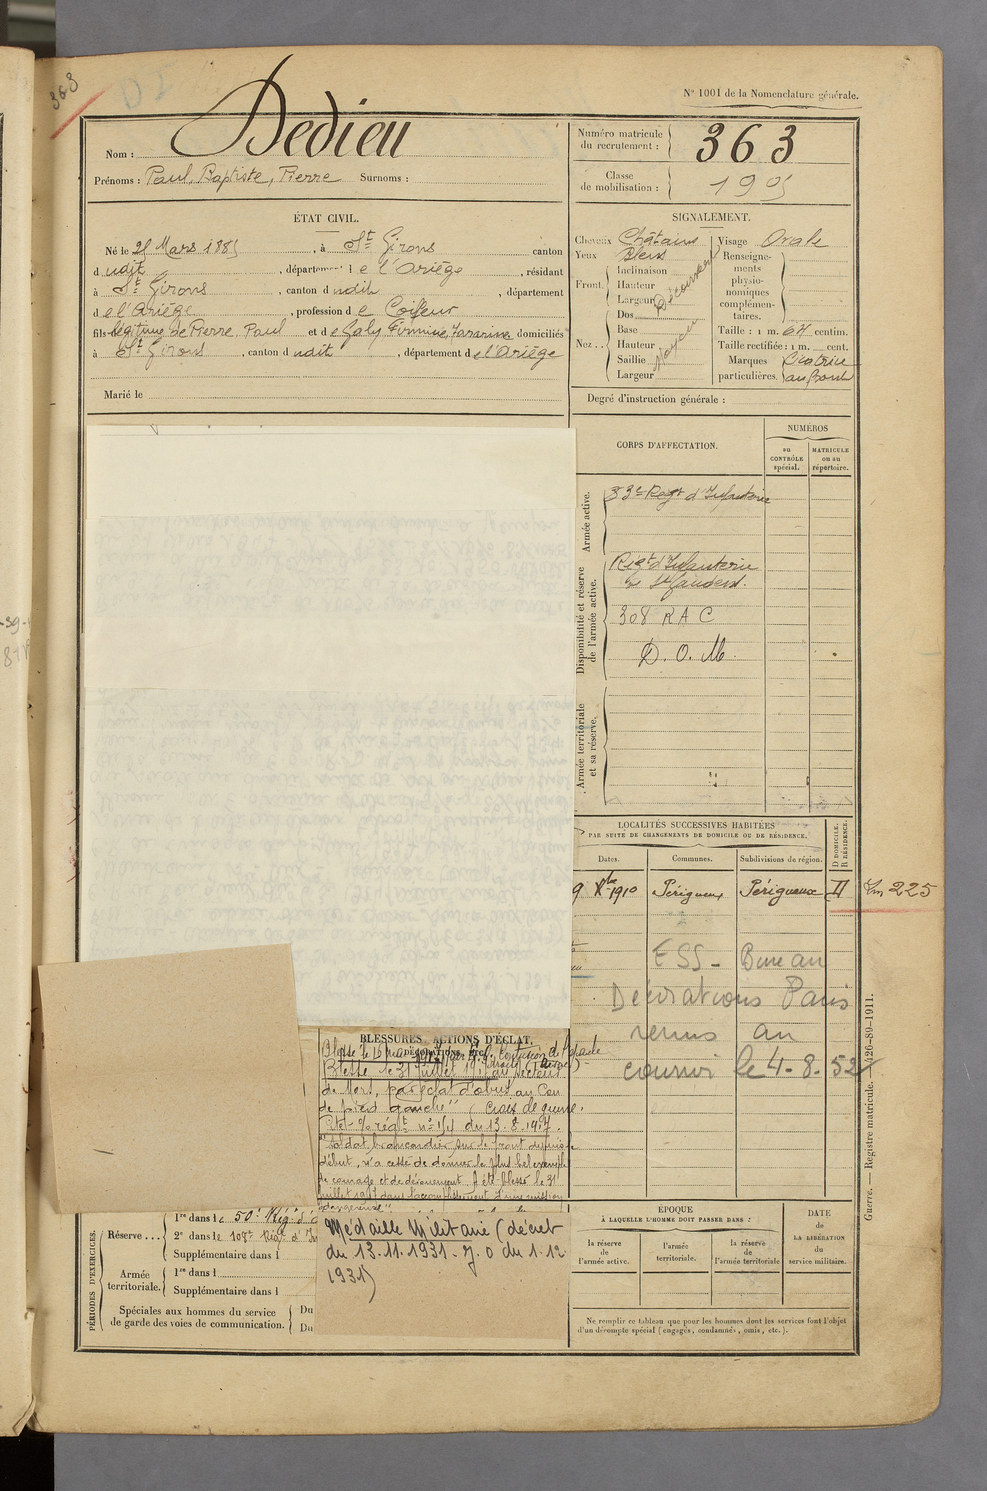 363
N° 1001 de la Nomenclature générale.
Nom : Dedieu
Prénoms : Paul, Baptiste, Pierre Surnoms :
Numéro matricule du recrutement : 363
Classe de mobilisation : 190
ÉTAT CIVIL.
Né le Mars 188 , à St Girons canton
d udit , département de l'Ariège , résidant
à St Girons , canton d udit , département
d e l'Ariège , profession d e Coiffeur
fils légitime de Pierre Paul et d e Galy Firmine domiciliés
à St Girons , canton d udit , département d e l'Ariège
Marié le
SIGNALEMENT.
Cheveux Châtains
Yeux Bleus
Front. Inclinaison
Hauteur
Largeur
Découvert
Nez .. Dos
Base
Hauteur
Saillie
Largeur
Moyen
Visage Ovale
Renseignements physionomiques complémentaires.
Taille : 1 m. 67 centim.
Taille rectifiée : 1 m. cent.
Marques particulières. Cicatrice au front
Degré d'instruction générale :
CORPS D'AFFECTATION.
NUMÉROS
au CONTRÔLE spécial.
MATRICULE ou au répertoire.
Armée active.
83e Régt d'Infanterie
Disponibilité et réserve de l'armée active.
Régt d'Infanterie
de St Gaudens.
308 R A C
D. O. M.
Armée territoriale et sa réserve.
LOCALITÉS SUCCESSIVES HABITÉES
PAR SUITE DE CHANGEMENTS DE DOMICILE OU DE RÉSIDENCE.
Dates. Communes. Subdivisions de région. D DOMICILE. R RÉSIDENCE.
9 Xbre 1910 Périgueux Périgueux
225
ESS - Bureau
Décorations Paris
renvis au
courrier le 4-8-52
BLESSURES, ACTIONS D'ÉCLAT, DÉCORATIONS, ETC.
Blessé le 31 juillet 1917 au secteur
du Mort, par éclat d'obus au Cou
de pied gauche" (Croix de guerre.
régt n° du 13.8.1917.
"Soldat brancardier, sur le front depuis le
début, n'a cessé de donner le plus bel exemple
de courage et de dévouement. A été blessé le 31
juillet 1917 dans l'accomplissement d'une mission
dangereuse"
Médaille Militaire (décret
du 13.11.1931 - J.O du 1.12
1931)
PÉRIODES D'EXERCICES.
Réserve ... 1re dans le 50e Rég. d'
2e dans le 108e Régt d'In
Supplémentaire dans l
Armée territoriale. 1re dans l
Supplémentaire dans l
Spéciales aux hommes du service de garde des voies de communication. Du
Du
ÉPOQUE
À LAQUELLE L'HOMME DOIT PASSER DANS :
la réserve de l'armée active. l'armée territoriale. la réserve de l'armée territoriale
DATE de LA LIBÉRATION du service militaire.
Ne remplir ce tableau que pour les hommes dont les services font l'objet
d'un décompte spécial (engagés, condamnés, omis, etc.).
Guerre. — Registre matricule. 426-89-1911.